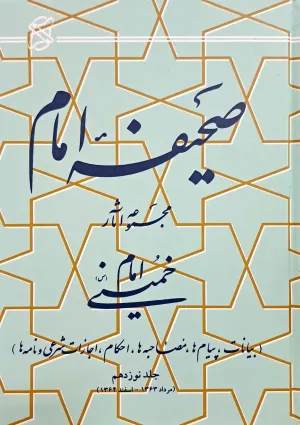 صحیفهٔ امام
مجموعه آثار
امام
خمینی (س)
(بیانات، پیام‌ها، مصاحبه‌ها، احکام، اجازات شرعی و نامه‌ها)
جلد نوزدهم
(مرداد ۱۳۶۳ - اسفند ۱۳۶۴)